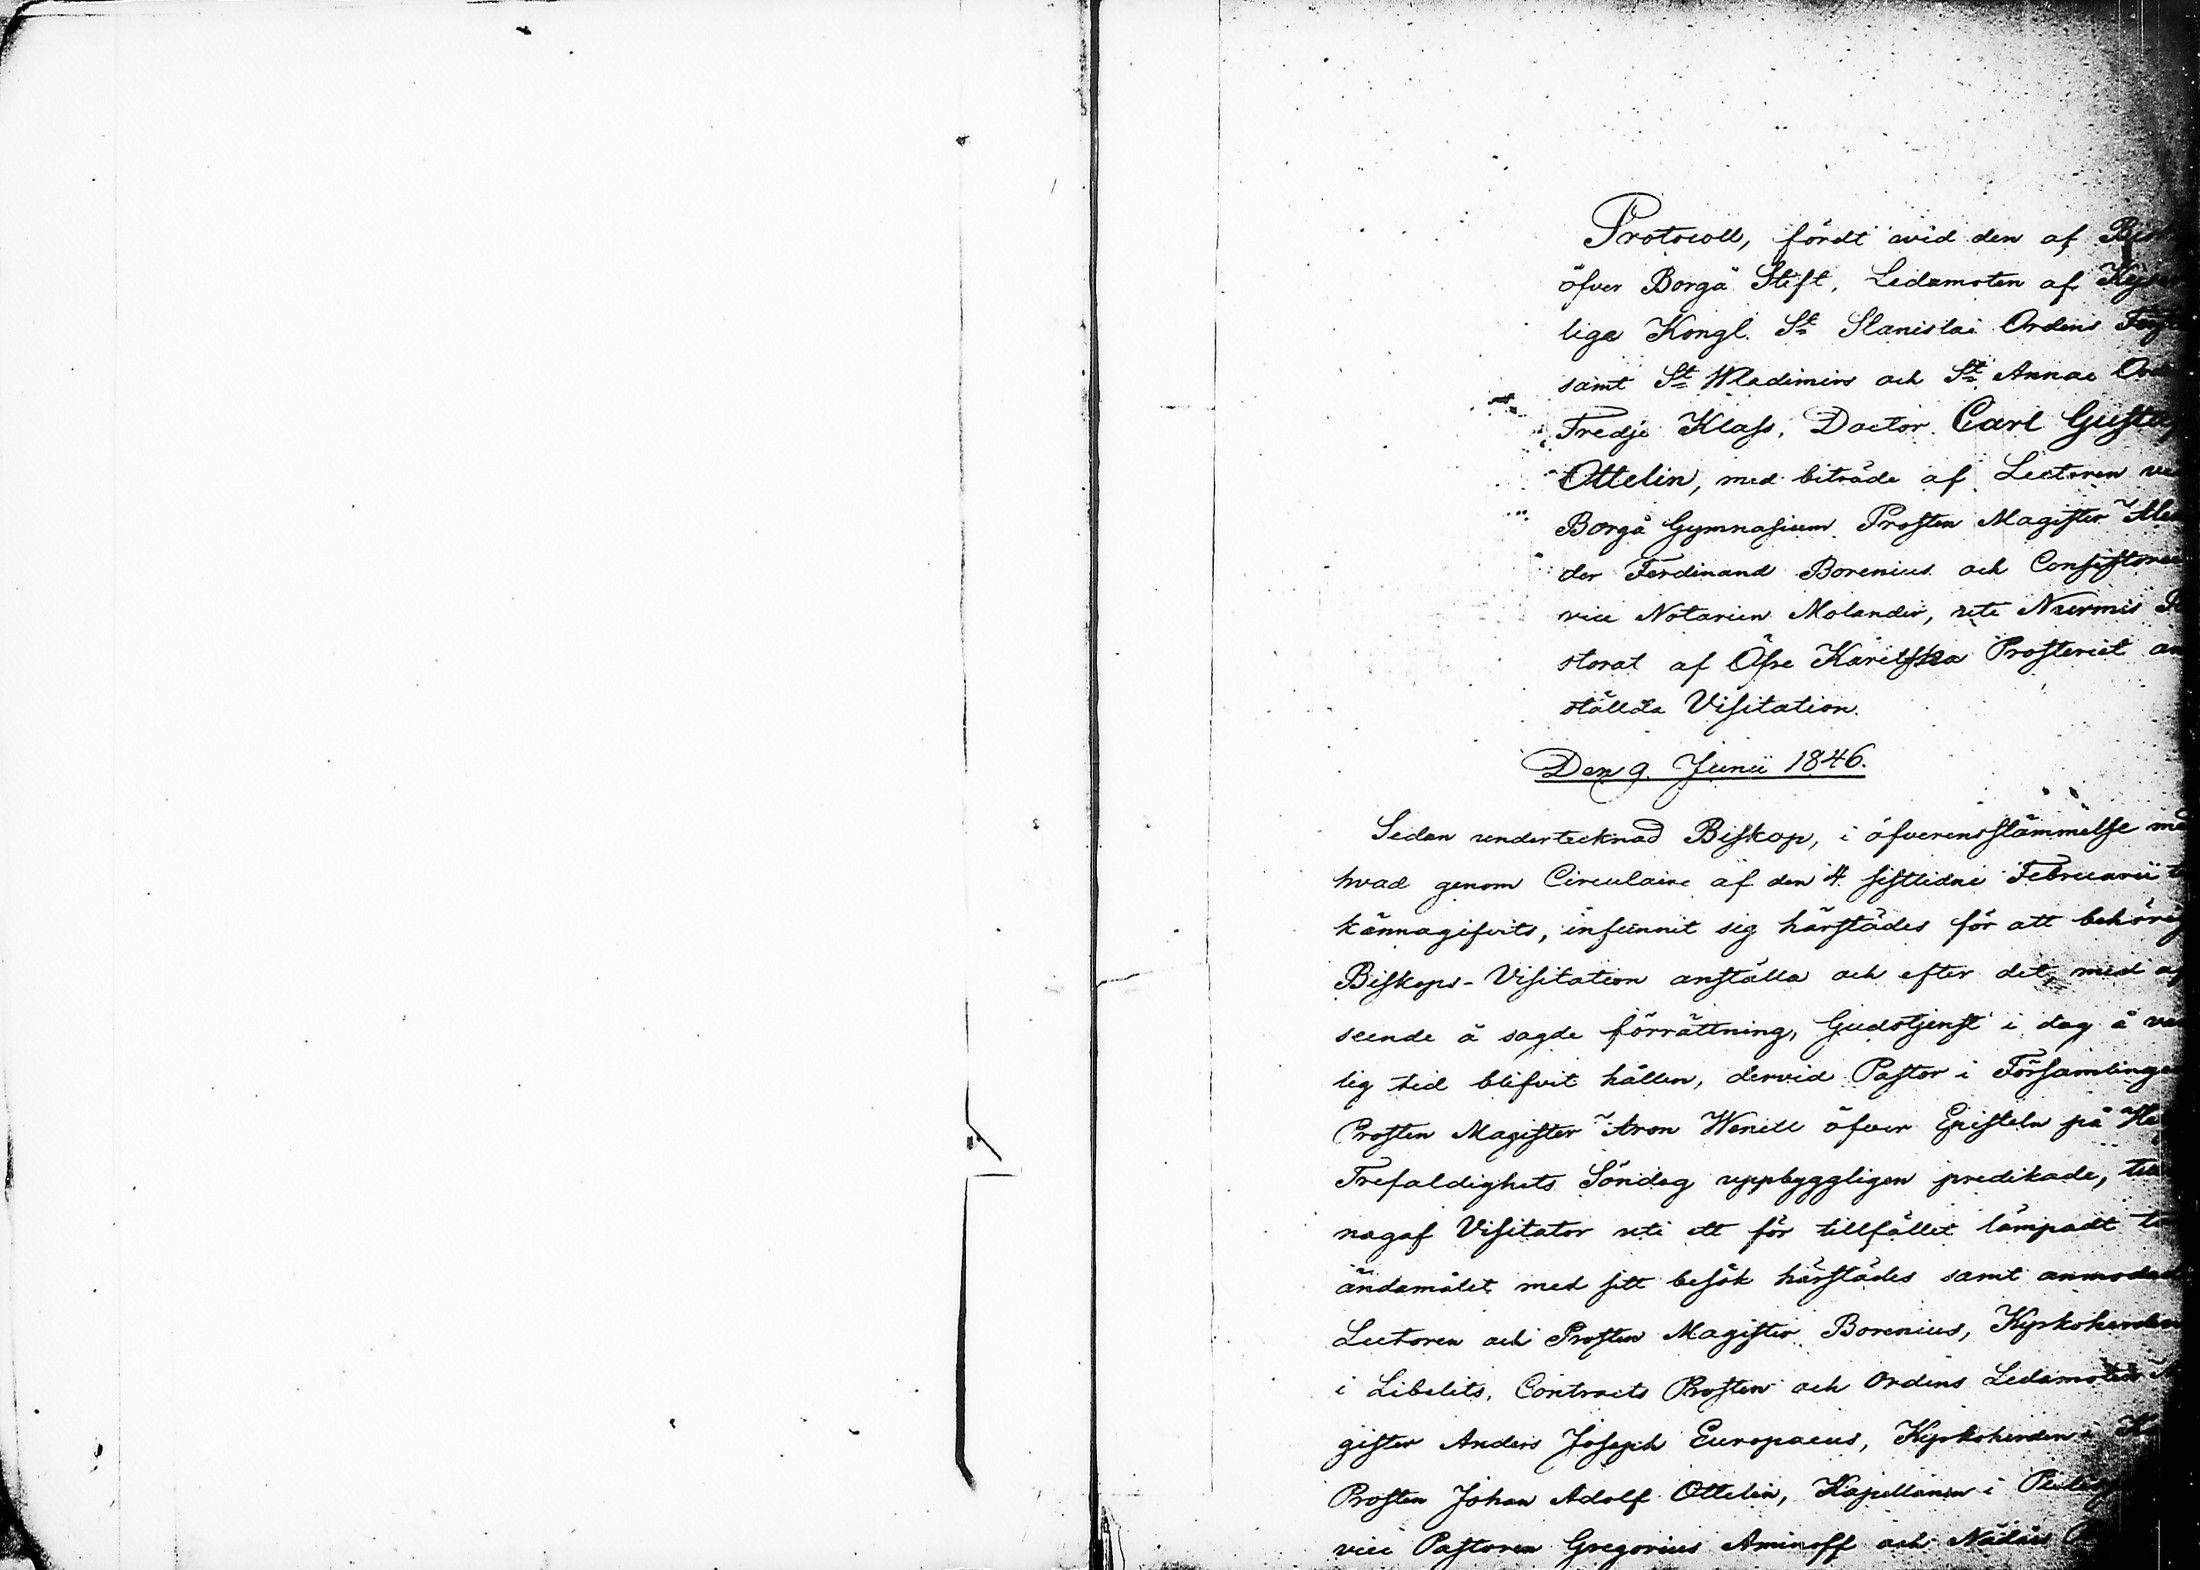 Protocoll, fördt wid den af
öfver Borgå Stift, Ledamoten af
liga Kongl. St Stanislai Ordens
samt St Wladimirs och St Annae
Tredje Klass, Doctor Carl Gustaf
Ottelin, med biträde af Lectoren
Borgå Gymnasium Prosten Magister
der Ferdinand Borenius och Consistorii
vice Notarien Molander, uti Nurmis
storat af Öfre Karelska Prosteriet an
ställda Visitation.
Den 9 Junii 1846.
Sedan undertecknad Biskop, i öfverensstämmelse med
hvad genom Circulaire af den 4 sistlidne Februarii
kännagifvits, infunnit sig härstädes för att behörig
Biskops-Visitation anställa och efter det, med af
seende å sagde förrättning, Gudstjenst i dag å van
lig tid blifvit hållen, dervid Pastor i Församlingen
Prosten Magister Aron Wenell öfver Episteln på
Trefaldighets Söndag uppbyggligen predikade,
nagaf Visitator uti ett för tillfället lämpadt tal
ändamålet med sitt besök härstädes samt anmodade
Lectoren och Prosten Magister Borenius, Kyrkoherden
i Libelits, Contracts Prosten och Ordens Ledamoten
gister Anders Joseph Europaeus, Kyrkoherden i
Prosten Johan Adolf Ottelin, Kapellanen i
vice Pastoren Gregorius Aminoff och